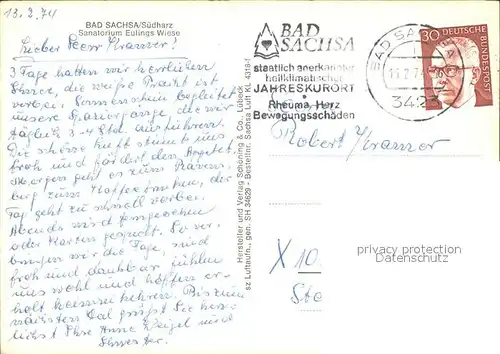 13.2.74
BAD SACHSA/Südharz
Sanatorium Eulings Wiese
Lieber Herr Kramer!
3 Tage hatten wir herrlichen
Schnee, die weiße Pracht ist
vorbei. Sonnenschein begleitet
unsere Spaziergänge die wir
täglich 3-4 Std. ausführen.
Die schöne Luft stimmt uns
froh und fördert den Appetit.
Morgen geht es zum Ravens
berg zum Kaffeetrinken, der
Tag geht zu schnell vorbei.
Abends wird ferngesehen
oder Karten gespielt. So ver
bringen wir die Tage, sind
froh und dankbar, fühlen
uns wohl und hoffen er-
holt heimzukehren. Bis zum
nächsten Mal grüßt Sie herz-
lichst Ihre Anne und
Schwester.
Hersteller und Verlag Schöning & Co., Lübeck
sz Luftaufn., gen. SH 34629 - Bestellnr. Sachsa Luft KL 4318-f
BAD
SACHSA
staatlich anerkannter
heilklimatischer
JAHRESKURORT
Rheuma, Herz
Bewegungsschäden
BAD SA
2.74
342
30
DEUTSCHE
BUNDESPOST
Robert Kramer
X 10
Ste
privacy protection
Datenschutz